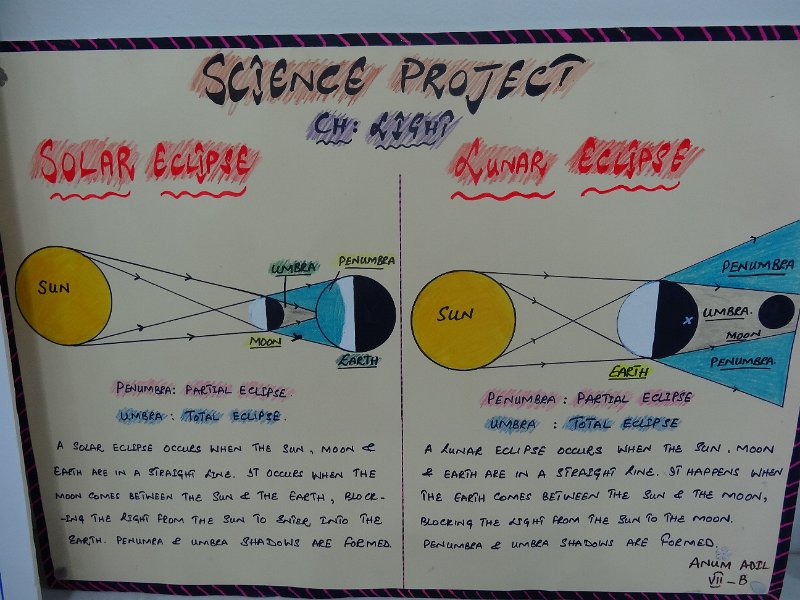 SCIENCE PROJECT
CH: LIGHT
SOLAR ECLIPSE
SUN
UMBRA
PENUMBRA
MOON
EARTH
PENUMBRA: PARTIAL ECLIPSE.
UMBRA : TOTAL ECLIPSE.
A SOLAR ECLIPSE OCCURS WHEN THE SUN, MOON &
EARTH ARE IN A STRAIGHT LINE. IT OCCURS WHEN THE
MOON COMES BETWEEN THE SUN & THE EARTH, BLOCK-
-ING THE LIGHT FROM THE SUN TO ENTER INTO THE
EARTH. PENUMRA & UMBRA SHADOWS ARE FORMED.
LUNAR ECLIPSE
SUN
PENUMBRA
UMBRA.
x
MOON
PENUMBRA.
EARTH
PENUMBRA : PARTIAL ECLIPSE
UMBRA : TOTAL ECLIPSE
A LUNAR ECLIPSE OCCURS WHEN THE SUN, MOON
& EARTH ARE IN A STRAIGHT LINE. IT HAPPENS WHEN
THE EARTH COMES BETWEEN THE SUN & THE MOON,
BLOCKING THE LIGHT FROM THE SUN TO THE MOON.
PENUMBRA & UMBRA SHADOWS ARE FORMED.
ANUM ADIL
VII - B